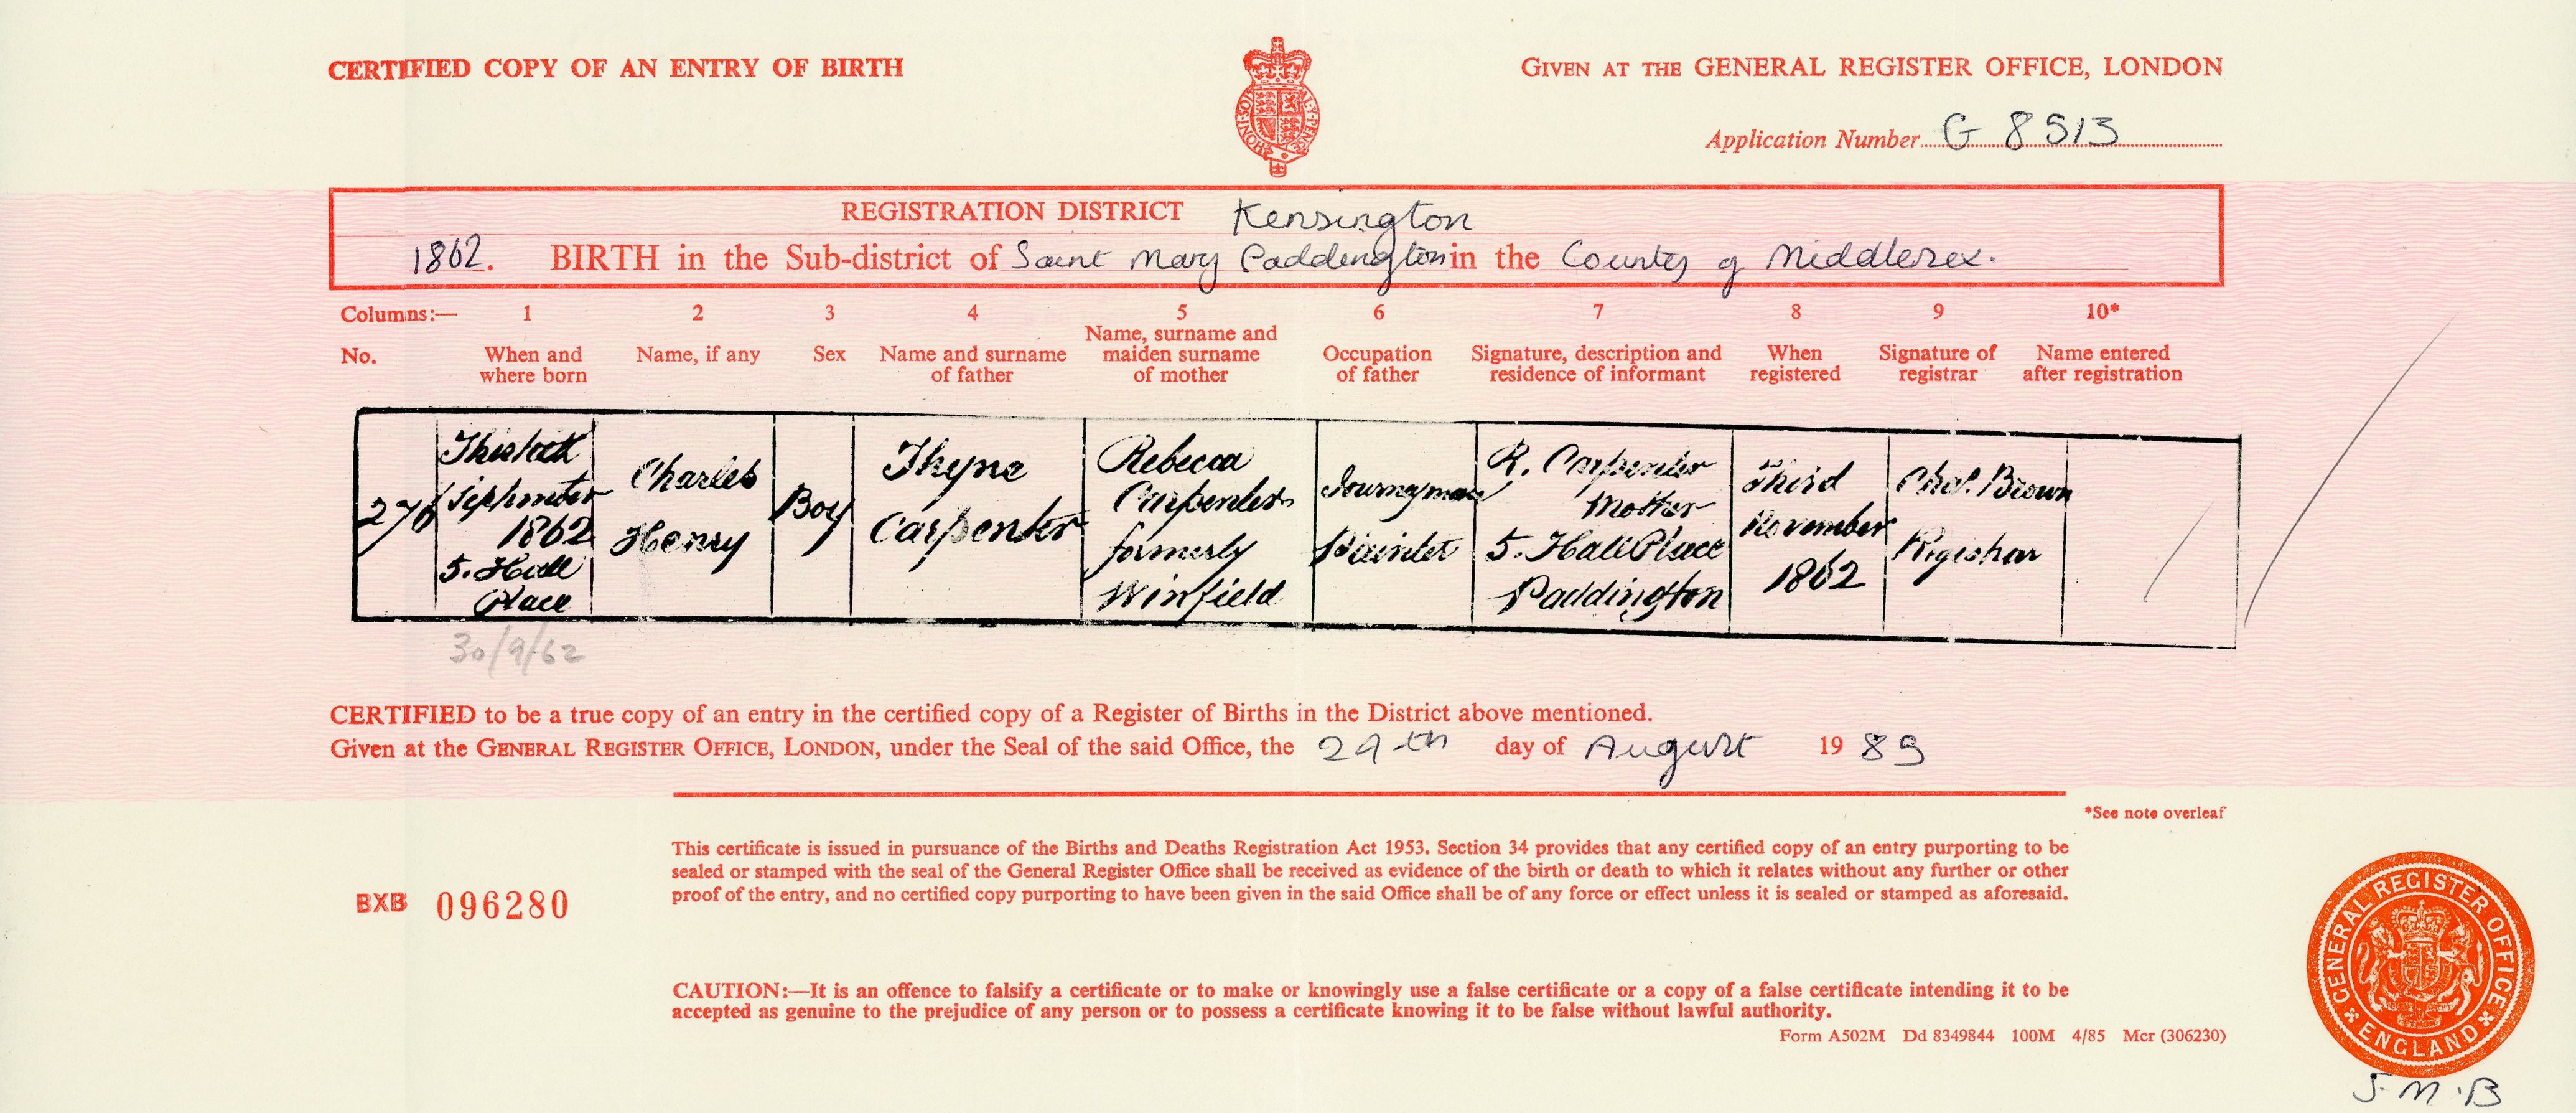 CERTIFIED COPY OF AN ENTRY OF BIRTH
GIVEN AT THE GENERAL REGISTER OFFICE, LONDON
Application Number G 8513
REGISTRATION DISTRICT Kensington
1862. BIRTH in the Sub-district of Saint Mary Paddington in the County of Middlesex.
Columns:— 1 2 3 4 5 6 7 8 9 10*
No.
When and
where born
Name, if any
Sex
Name and surname
of father
Name, surname and
maiden surname
of mother
Occupation
of father
Signature, description and
residence of informant
When
registered
Signature of
registrar
Name entered
after registration
276
Thirtieth
September
1862
5. Hall
Place
Charles
Henry
Boy
Thyne
Carpenter
Rebecca
Carpenter
formerly
Winfield
Journeyman
Painter
R. Carpenter
Mother
5. Hall Place
Paddington
Third
November
1862
Chas. Brown
Registrar
30/9/62
CERTIFIED to be a true copy of an entry in the certified copy of a Register of Births in the District above mentioned.
Given at the GENERAL REGISTER OFFICE, LONDON, under the Seal of the said Office, the 29th day of August 1989
*See note overleaf
This certificate is issued in pursuance of the Births and Deaths Registration Act 1953. Section 34 provides that any certified copy of an entry purporting to be
sealed or stamped with the seal of the General Register Office shall be received as evidence of the birth or death to which it relates without any further or other
proof of the entry, and no certified copy purporting to have been given in the said Office shall be of any force or effect unless it is sealed or stamped as aforesaid.
BXB 096280
CAUTION:—It is an offence to falsify a certificate or to make or knowingly use a false certificate or a copy of a false certificate intending it to be
accepted as genuine to the prejudice of any person or to possess a certificate knowing it to be false without lawful authority.
Form A502M Dd 8349844 100M 4/85 Mcr (306230)
GENERAL REGISTER OFFICE
ENGLAND
S.M.B